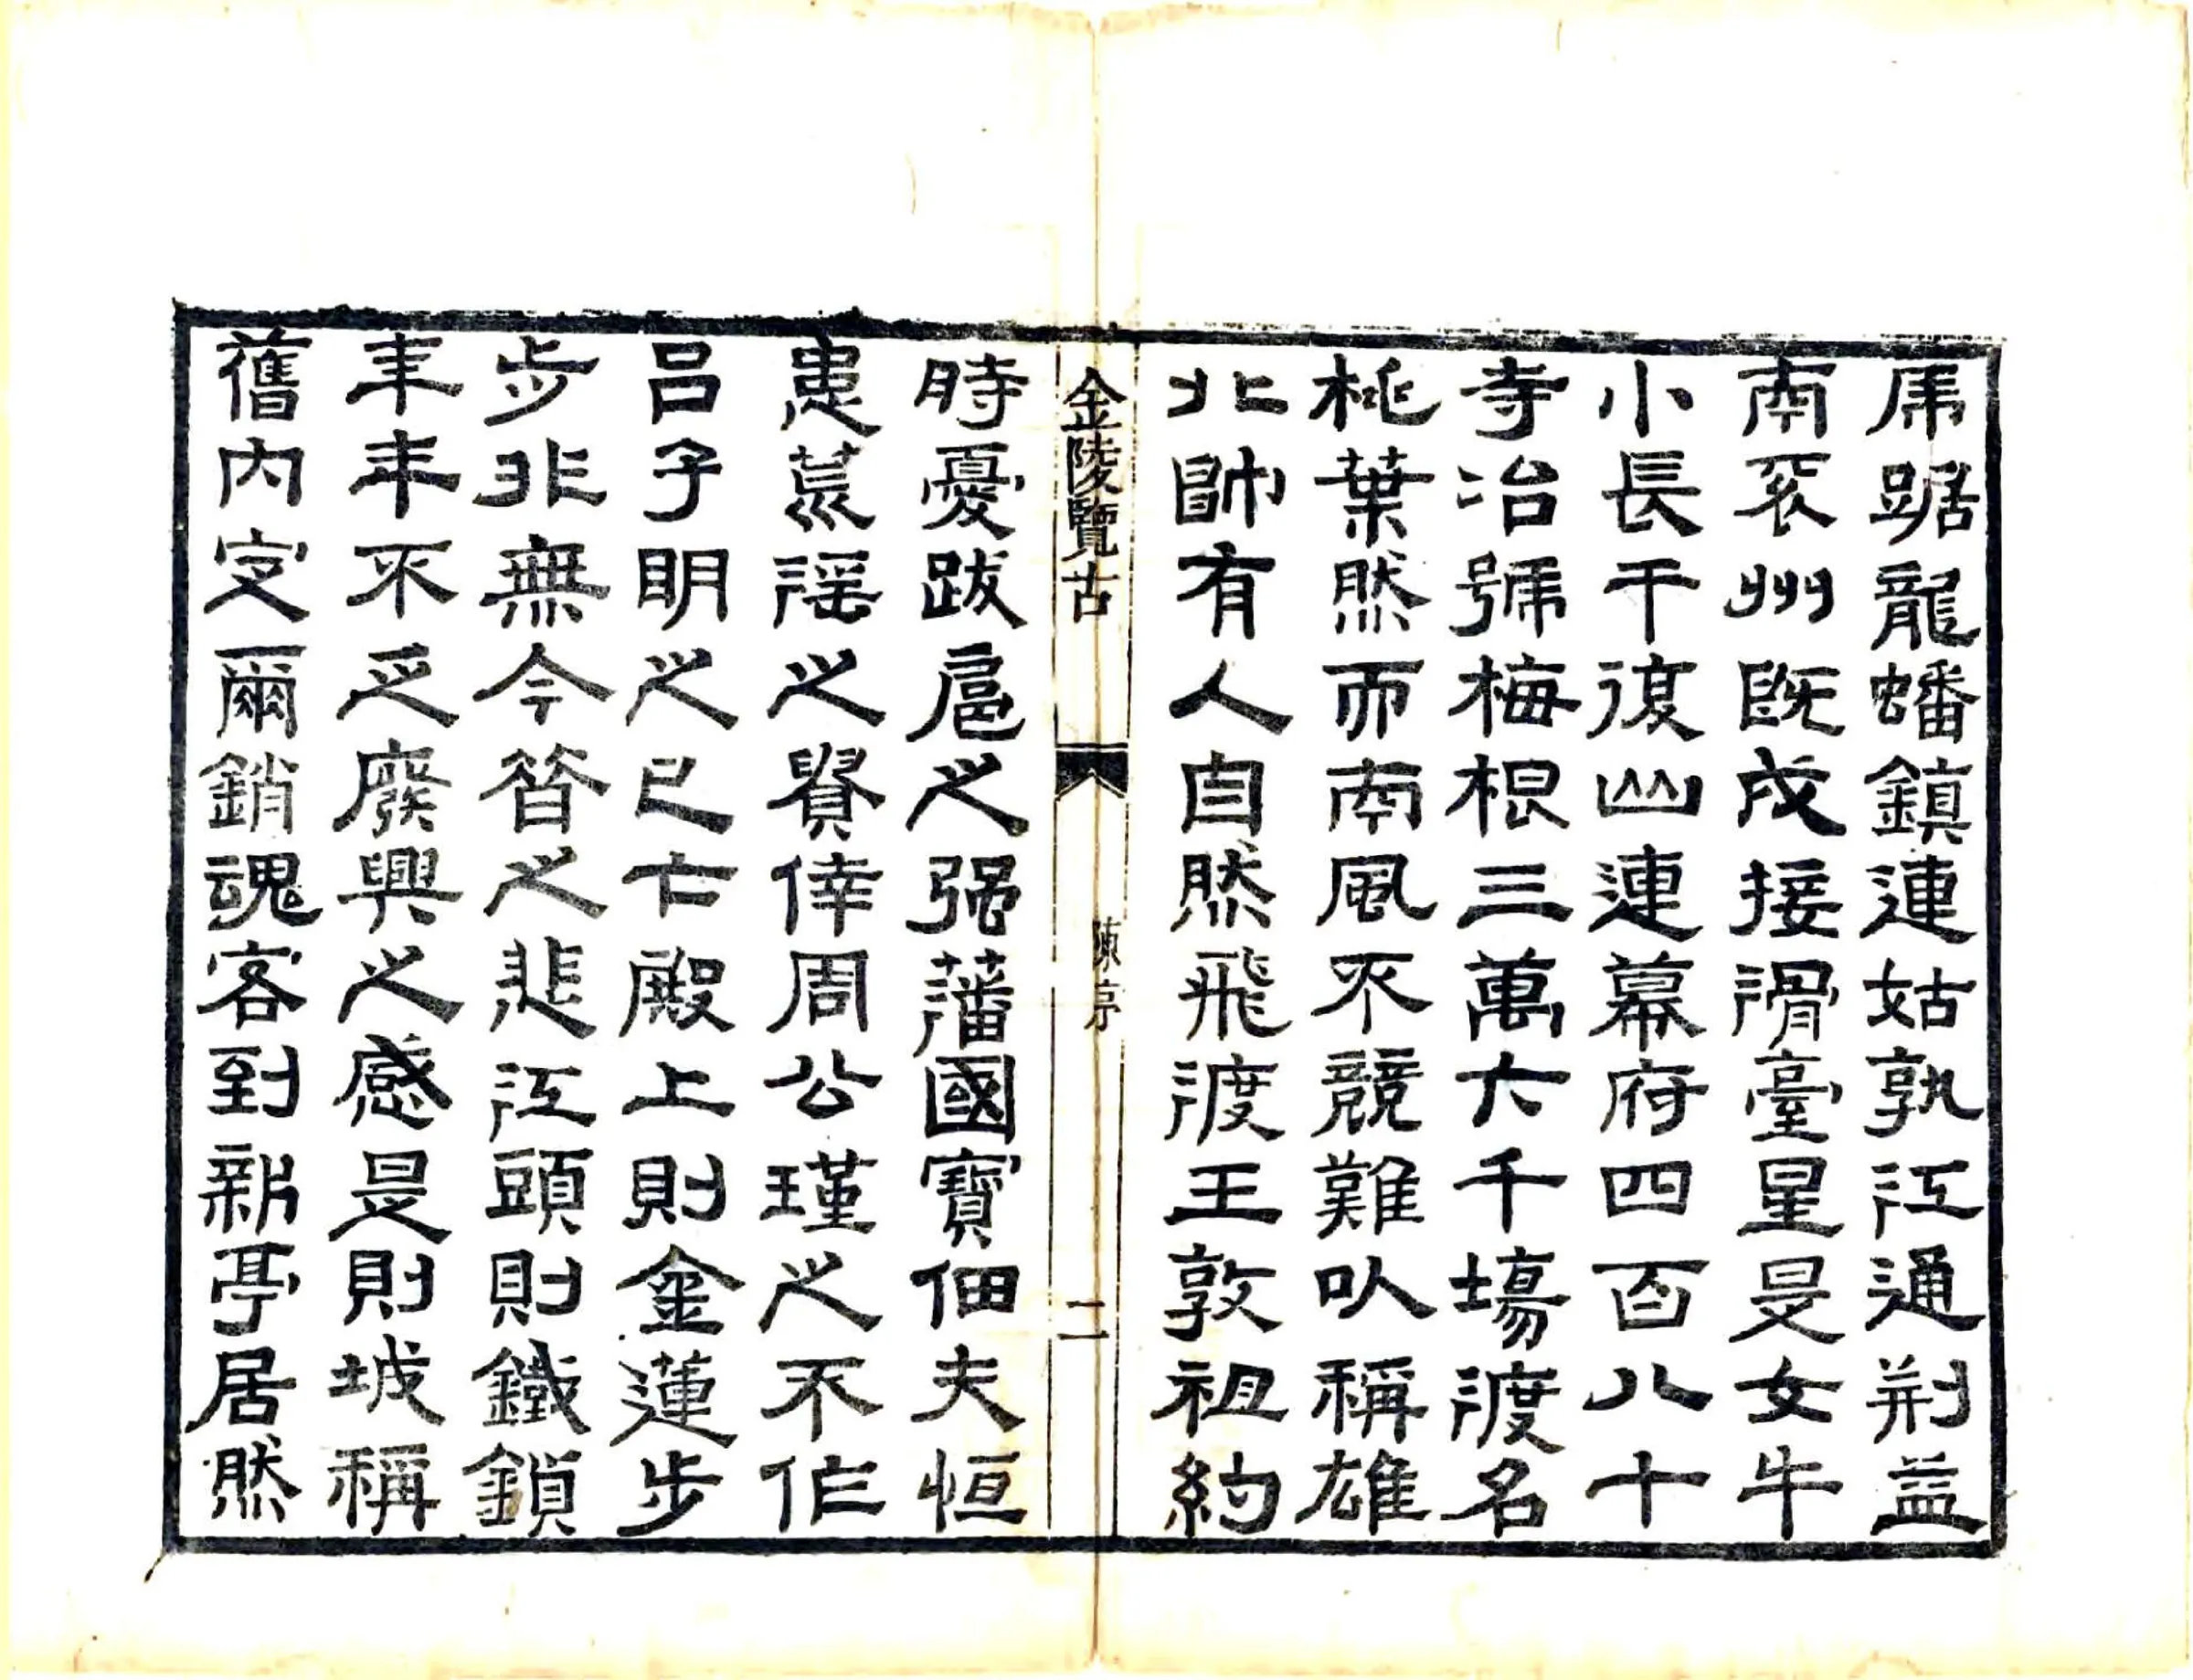 虎踞龍蟠鎮連姑孰江通荊益
南兗州旣成接滑臺星是女牛
小長干復山連幕府四百八十
寺冶號梅根三萬六千塲渡名
桃葉然而南風不競難以稱雄
北帥有人自然飛渡王敦祖約
金陵覽古
陳序
二
時憂跋扈之强藩國寶佃夫恒
患荒謡之嬖倖周公瑾之不作
呂子明之已亡殿上則金蓮步
步非無今昝之悲江頭則鐵鎖
年年不乏廢興之感是則城稱
舊內定爾銷魂客到新亭居然